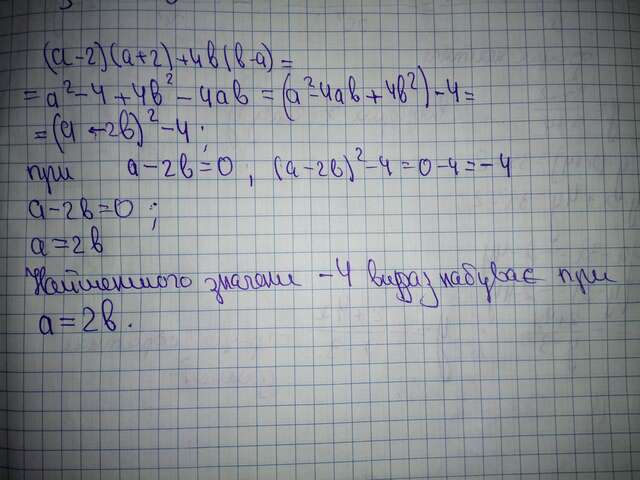 (a-2)(a+2)+4в(в-a)=
=a²-4+4в²-4aв=(a²-4aв+4в²)-4=
=(a-2в)²-4;
при a-2в=0, (a-2в)²-4=0-4=-4
a-2в=0;
a=2в
Найменшого значення -4 вираз набуває при
a=2в.